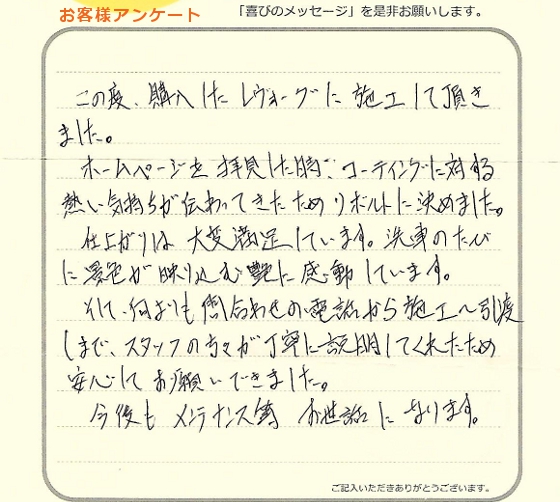 お客様アンケート 「喜びのメッセージ」を是非お願いします。
この度、購入したレヴォーグに施工して頂き
ました。
ホームページを拝見した時に コーティングに対する
熱い気持ちが伝わってきたためリボルトに決めました。
仕上がりは大変満足しています。洗車のたび
に景色が映り込む艶に感動しています。
そして、何よりも問合わせの電話から施工〜引渡
しまで、スタッフの方々が丁寧に説明してくれたため
安心してお願いできました。
今後もメンテナンス等お世話になります。
ご記入いただきありがとうございます。